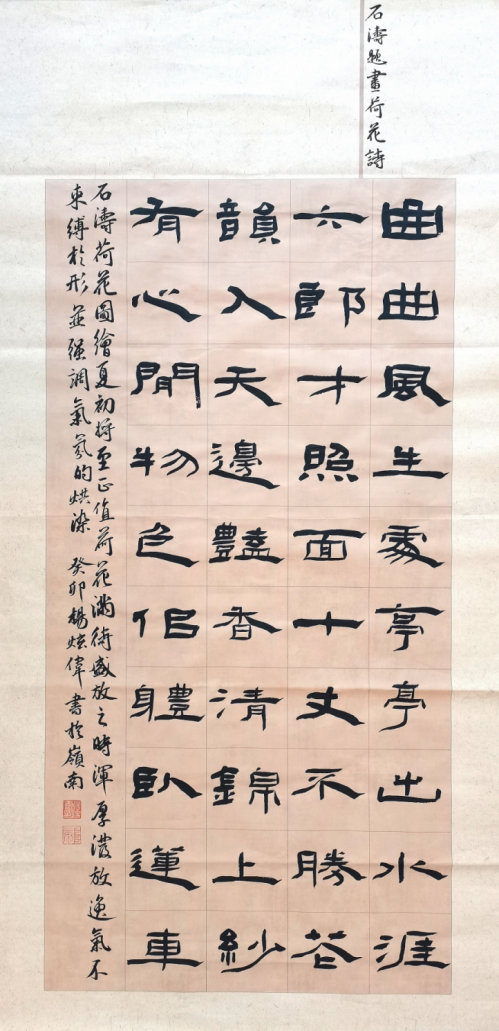 石濤題畫荷花詩
曲曲風生處亭亭出水涯
六郎才照面十丈不勝花
韻入天邊豔香清錦上紗
有心閒物色侶體臥蓮車
石濤荷花圖繪夏初將至正值荷花滿街盛放之時渾厚潑放逸氣不
束縛於形並强調氣氛的烘染 癸卯楊炫偉書於嶺南